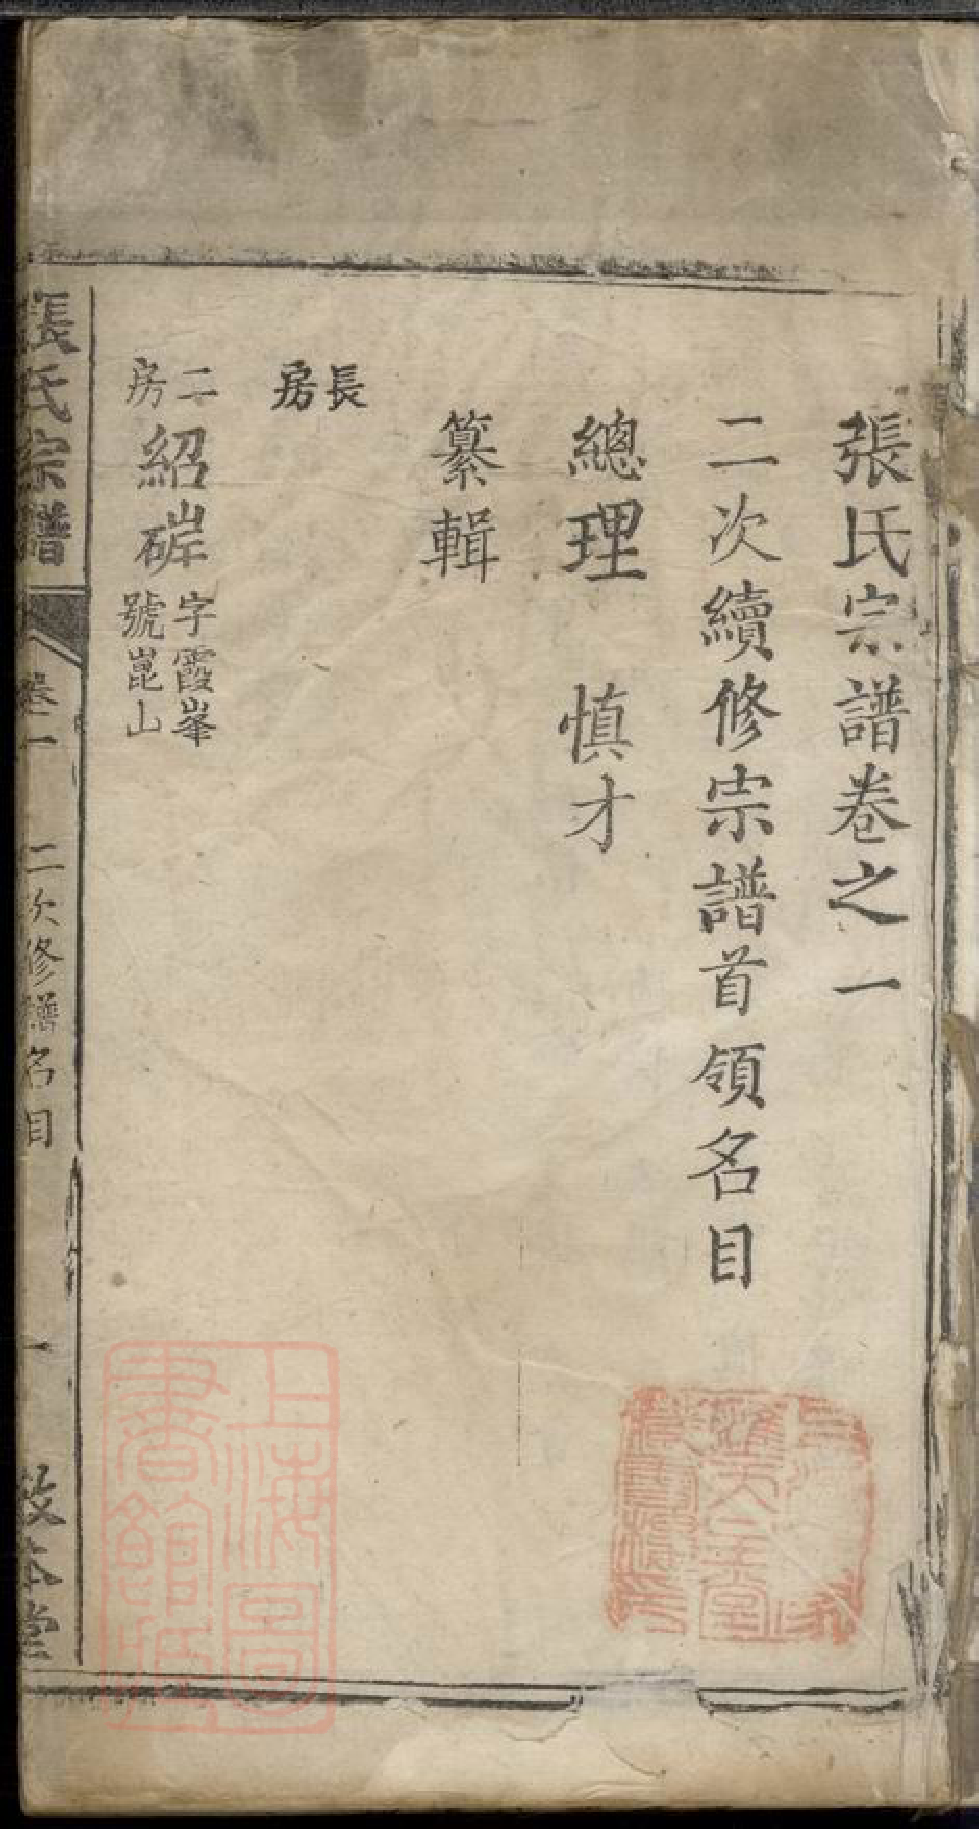 張氏宗譜卷之一
二次續修宗譜首領名目
總理 慎才
纂輯
長房
二房 紹𡵆 字霞峯 號崑山
張氏宗譜 卷一 二次修譜名目 一
上海圖書館藏